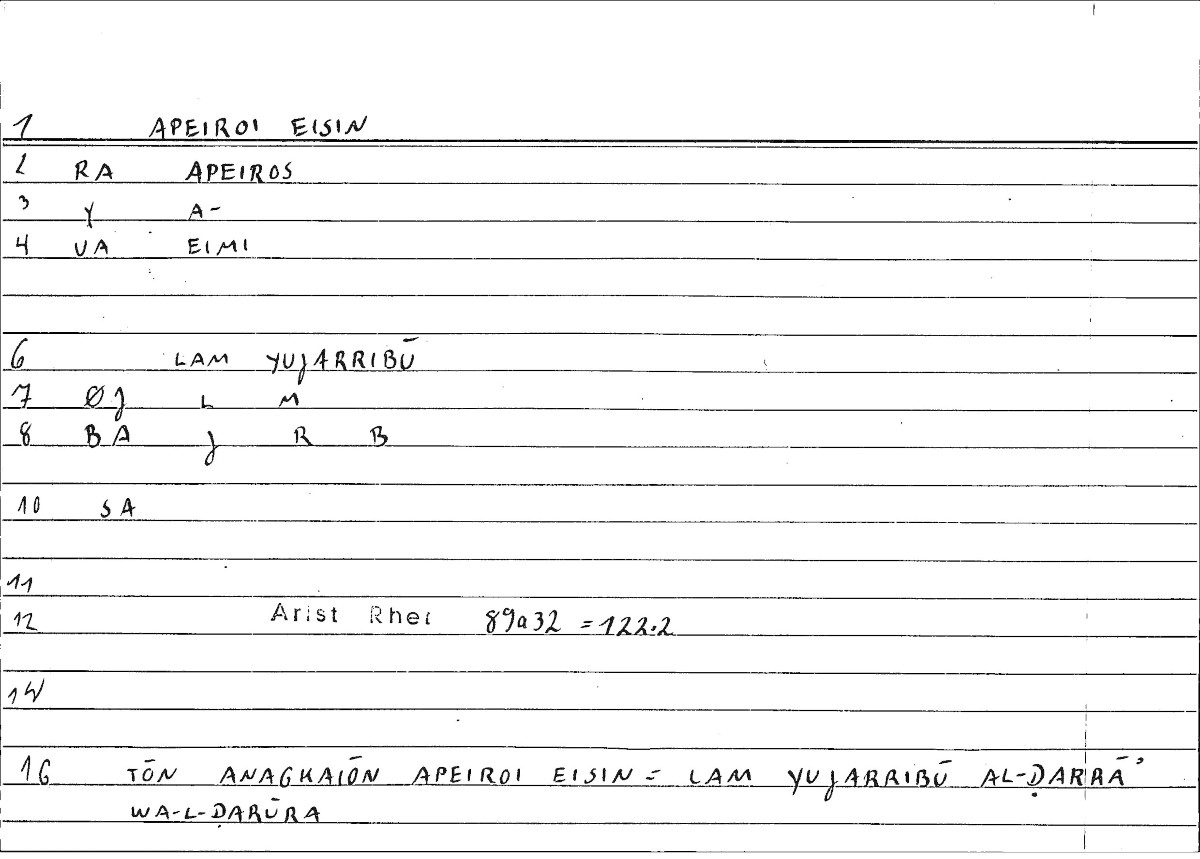 1 APEIROI EISIN
2 RA APEIROS
3 Y A-
4 VA EIMI
6 LAM YUJARRIBŪ
7 ØJ L M
8 BA J R B
10 SA
11
12 Arist Rhet 89a32 = 122.2
14
16 TŌN ANAGKAIŌN APEIROI EISIN = LAM YUJARRIBŪ AL-ḌARRĀʾ
WA-L-ḌARŪRA